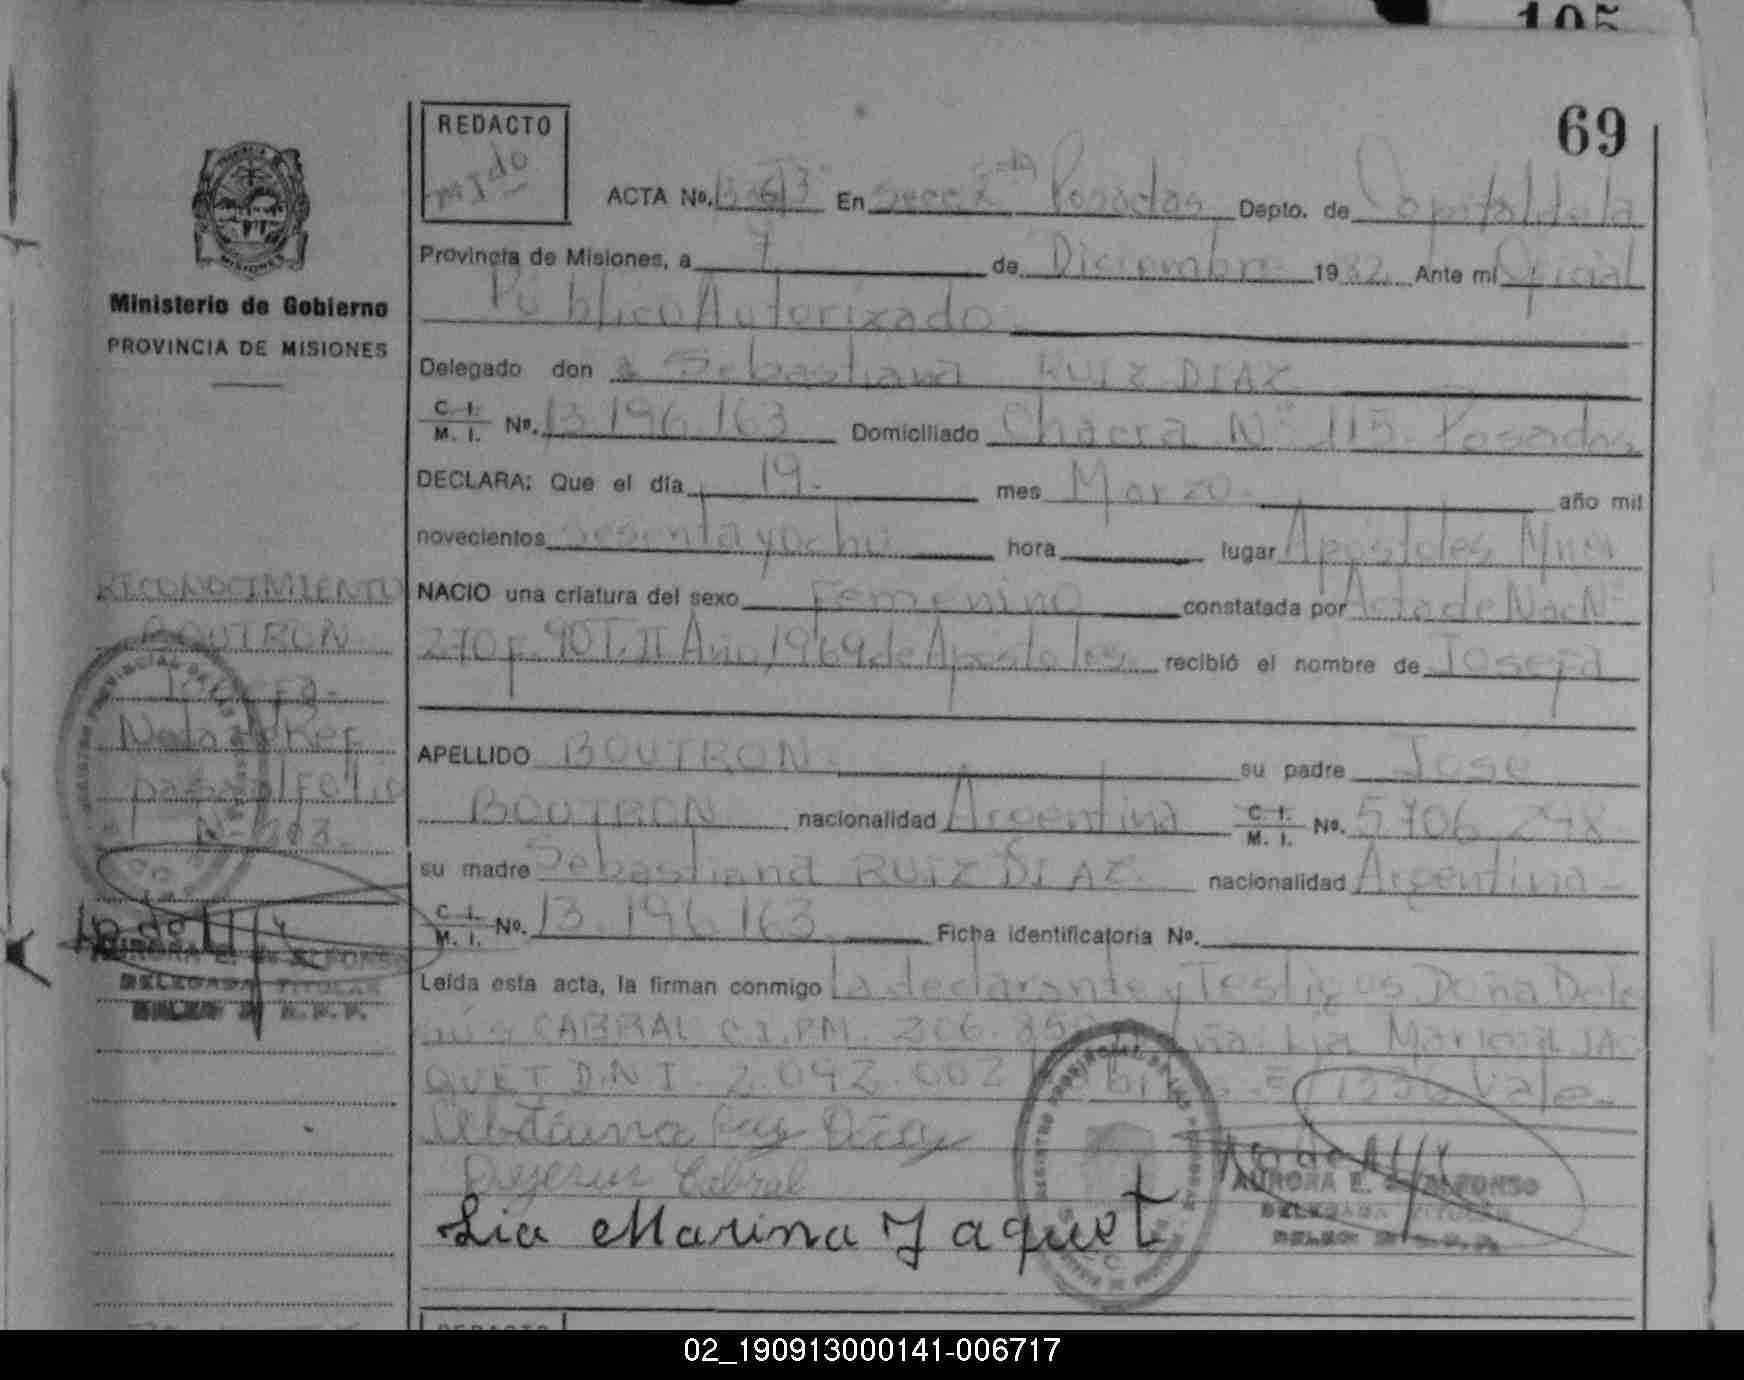 105
69
REDACTO
ACTA Nº. En Secc 2da Posadas Depto. de Capital de la
Provincia de Misiones, a 7 de Diciembre 1982 Ante mí Oficial
Público Autorizado
Delegado don a Sebastiana RUIZ DIAZ
C. I. M. I. Nº. 13.196.163 Domiciliado Chacra Nº 115 Posadas
DECLARA: Que el día 19 mes Marzo año mil
novecientos sesenta y ocho hora lugar Apóstoles Mnes
NACIO una criatura del sexo Femenino constatada por Acta de Nac Nº
270 f. 90 T. II Año 1969 de Apóstoles recibió el nombre de Josefa
APELLIDO BOUTRON su padre José
BOUTRON nacionalidad Argentina C. I. M. I. Nº. 5.706.298
su madre Sebastiana RUIZ DIAZ nacionalidad Argentina
C. I. M. I. Nº. 13.196.163 Ficha identificatoria Nº.
Leída esta acta, la firman conmigo la declarante y Testigos Doña
CABRAL C.I. PM. Lia Marina JA
QUET D.N.I. 2.092.002 Vale
Cabral
Lia Marina Jaquet
AURORA E. ALFONSO
DELEGADA TITULAR
Ministerio de Gobierno
PROVINCIA DE MISIONES
MISIONES
RECONOCIMIENTO
BOUTRON
Josefa
Nota de Ref
pasa al Folio
AURORA E. ALFONSO
DELEGADA TITULAR
REDACTO
02_190913000141-006717